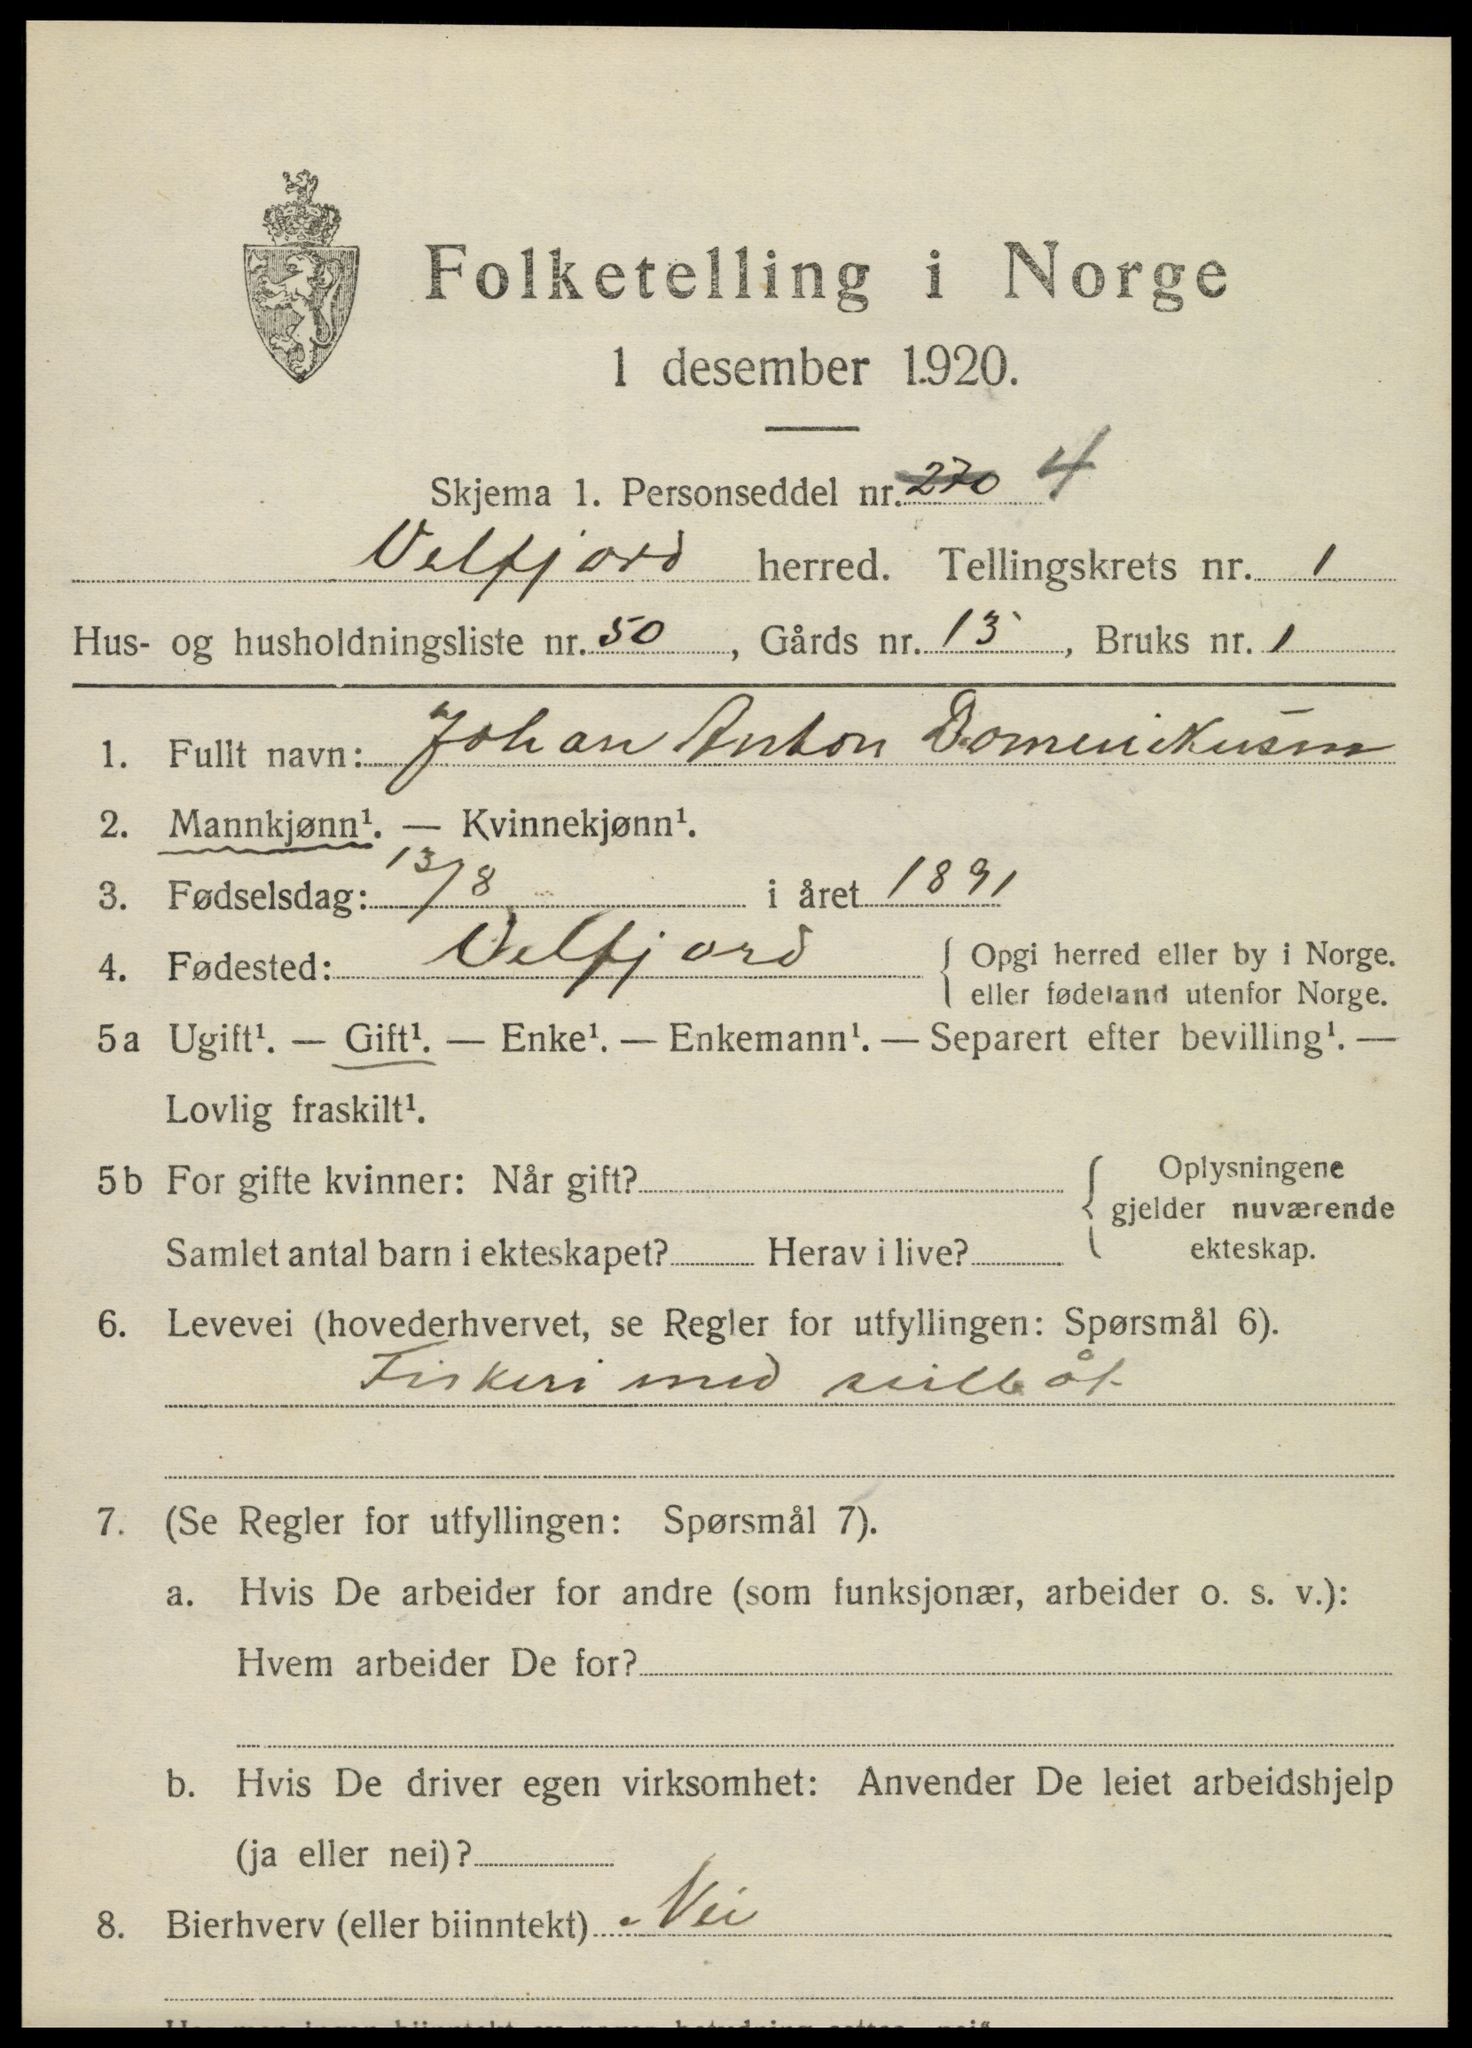 Folketelling i Norge
1 desember 1920.
Skjema 1. Personseddel nr. 270 4
Velfjord herred. Tellingskrets nr. 1
Hus- og husholdningsliste nr. 50, Gårds nr. 13, Bruks nr. 1
1. Fullt navn: Johan Anton Domenikussen
2. Mannkjønn¹. — Kvinnekjønn¹.
3. Fødselsdag: 13/8 i året 1891
4. Fødested: Velfjord { Opgi herred eller by i Norge.
eller fødeland utenfor Norge.
5a Ugift¹. — Gift¹. — Enke¹. — Enkemann¹. — Separert efter bevilling¹. —
Lovlig fraskilt¹.
5b For gifte kvinner: Når gift? { Oplysningene
gjelder nuværende
Samlet antal barn i ekteskapet? Herav i live? ekteskap.
6. Levevei (hovederhvervet, se Regler for utfyllingen: Spørsmål 6).
Fiskeri med seilbåt
7. (Se Regler for utfyllingen: Spørsmål 7).
a. Hvis De arbeider for andre (som funksjonær, arbeider o. s. v.):
Hvem arbeider De for?
b. Hvis De driver egen virksomhet: Anvender De leiet arbeidshjelp
(ja eller nei)?
8. Bierhverv (eller biinntekt) Nei